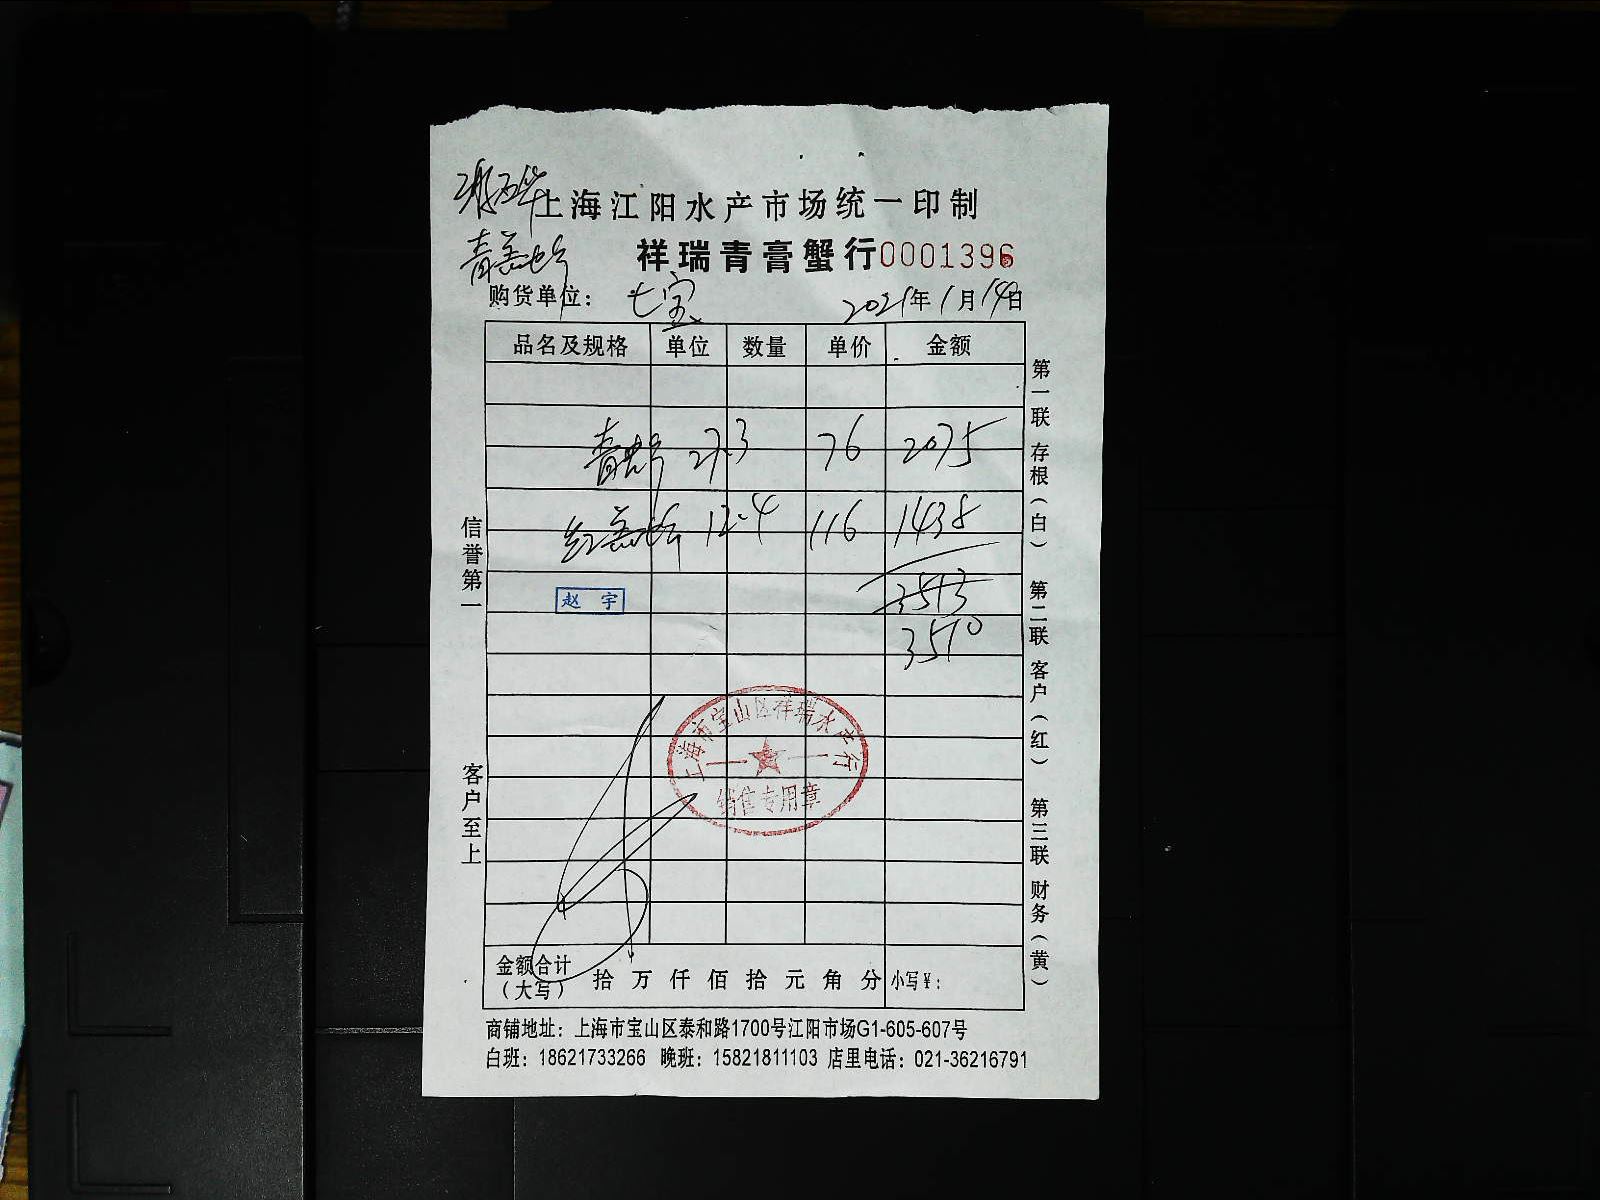 上海江阳水产市场统一印制
祥瑞青膏蟹行0001396
购货单位：七宝 2021年1月14日
品名及规格 单位 数量 单价 金额
青 27.3 76 2075
红膏 12.4 116 1438
3513
赵 宇
3510
上海市宝山区祥瑞水产行
销售专用章
金额合计
（大写） 拾 万 仟 佰 拾 元 角 分 小写￥：
信誉第一
客户至上
第一联 存根（白） 第二联 客户（红） 第三联 财务（黄）
商铺地址：上海市宝山区泰和路1700号江阳市场G1-605-607号
白班：18621733266 晚班：15821811103 店里电话：021-36216791